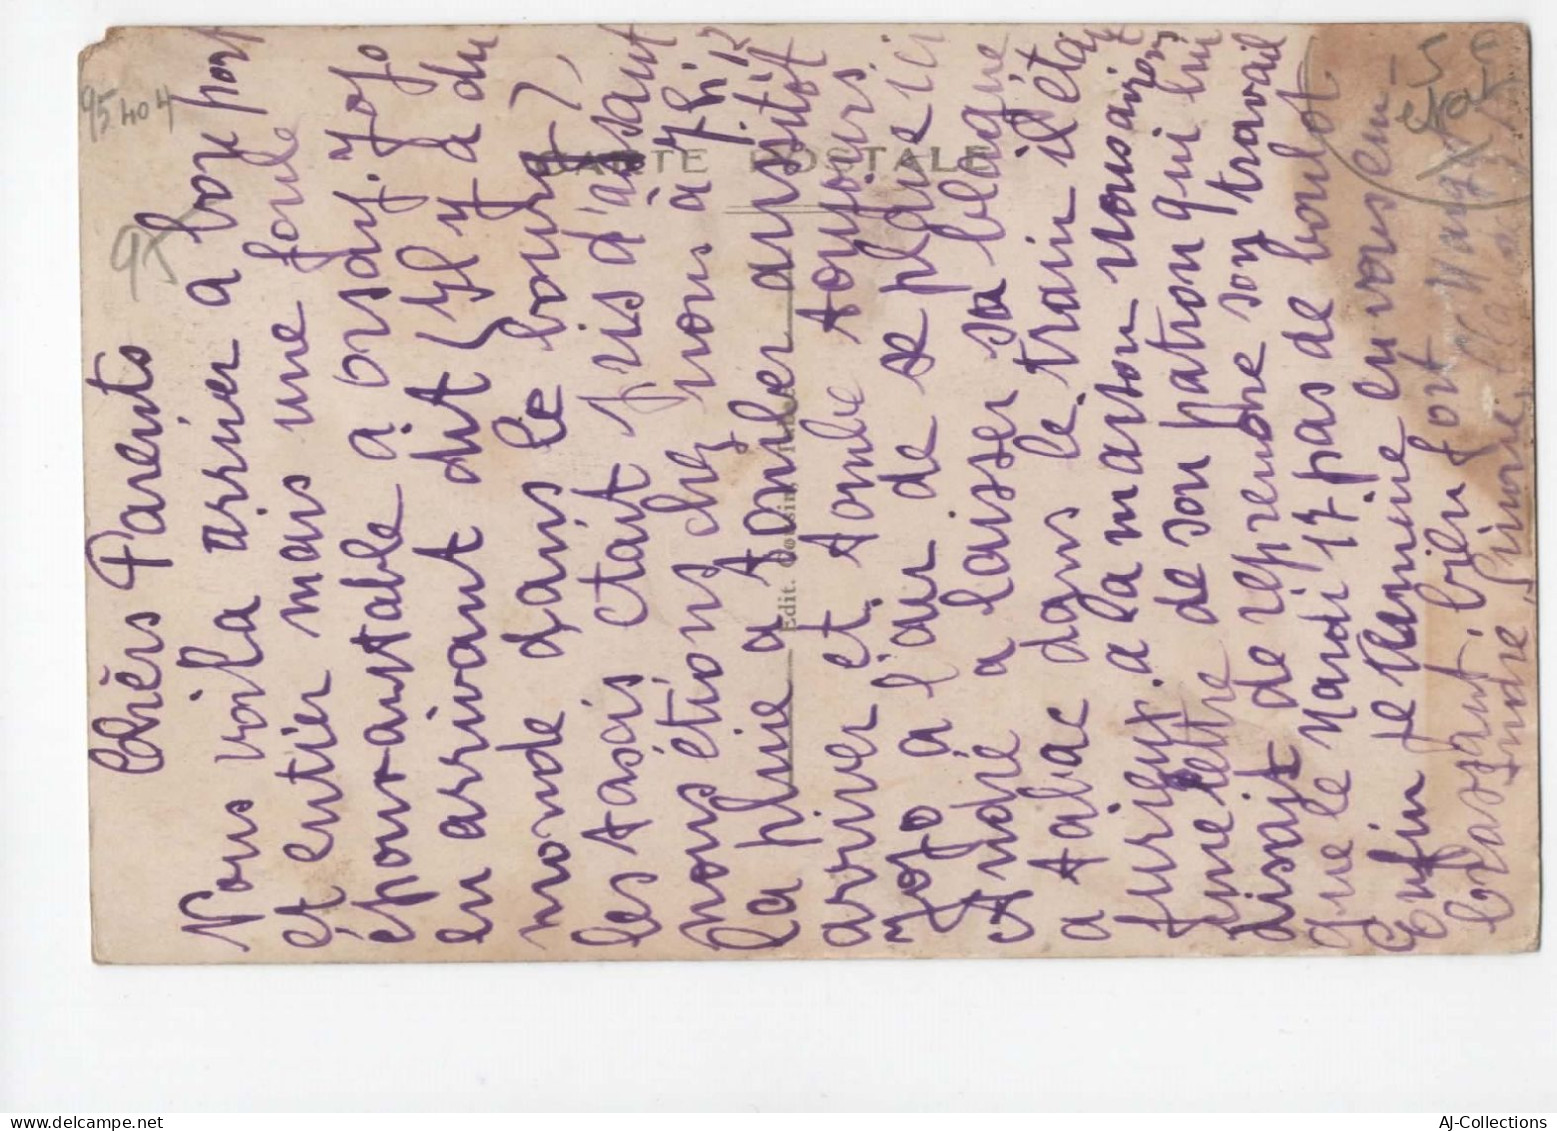 Chèrs Parents
Nous voila arriver a bon port
et entier mais une foule
épouvantable a orsay. Jojo
en arrivant dit (Yl y a du
monde dans le bourg),
les taxis etait pris d'assaut
nous étions chez nous à 7h 12
la pluie a tomber aussitot
arriver et tombe toujours
Jojo a l'air de se plaire ici
André a laisser sa blague
a tabac dans le train il était
furieux. a la maison nous avions
une lettre de son patron qui lui
disait de reprendre son travail
que le Mardi 17 pas de boulot
Enfin je termine en vous em
brassant bien fort
André, Simone,
CARTE POSTALE
Edit.
95 404
95
15 €